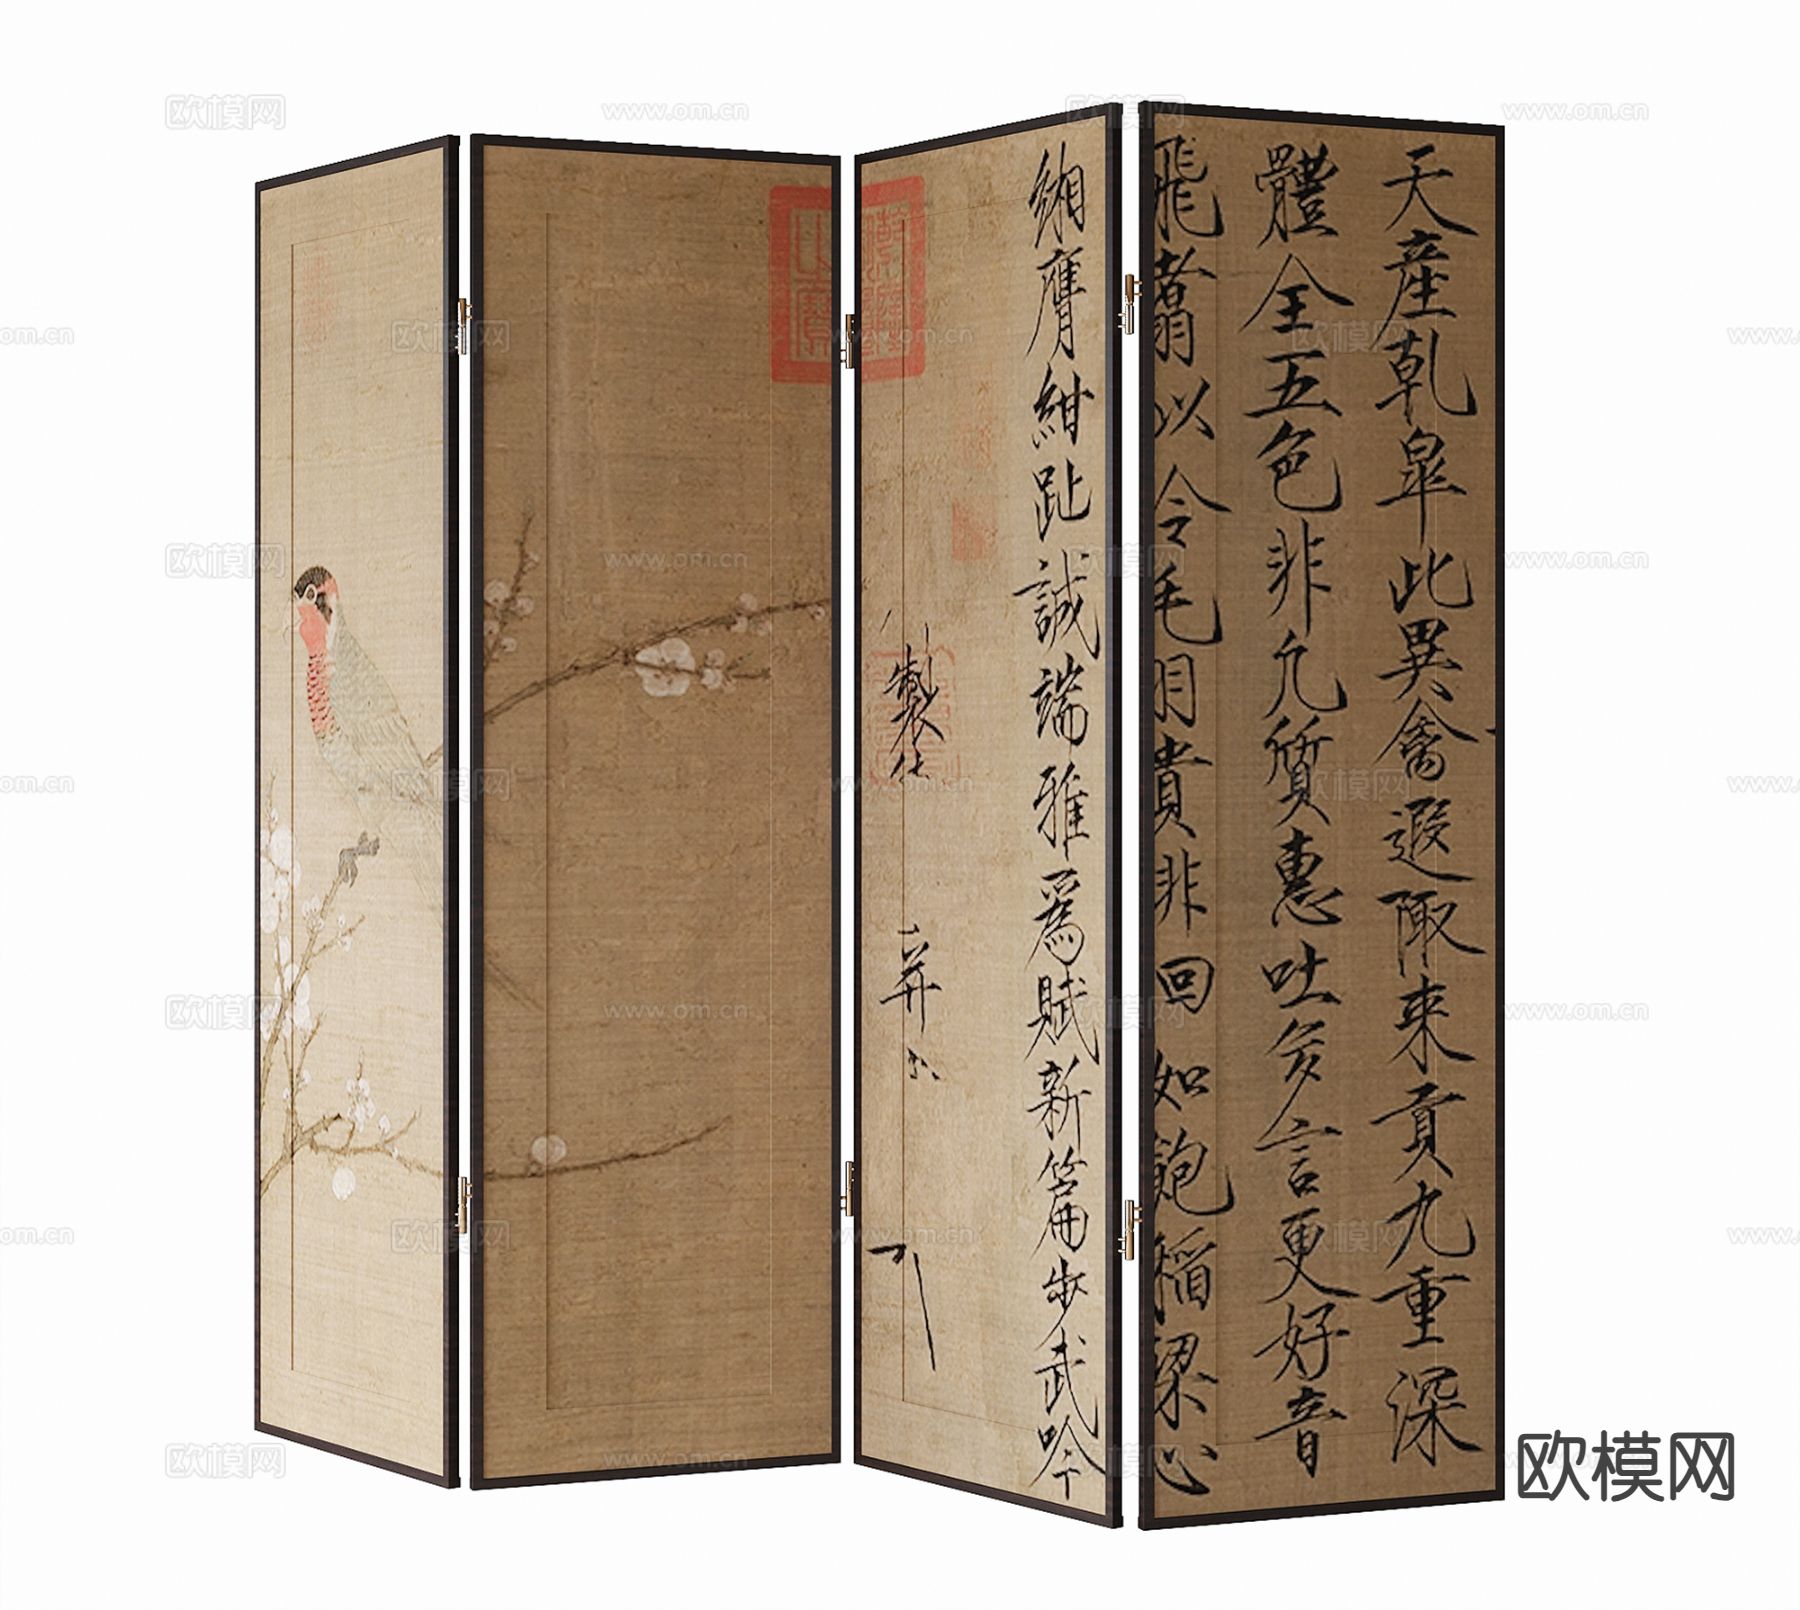 天產乾皐此異禽遐陬來貢九重深
體全五色非凡質惠吐多言更好音
飛翥以令毛羽貴非回如飽稻粱心
緗膺紺趾誠端雅爲賦新篇步武吟
製
欧模网
www.om.cn